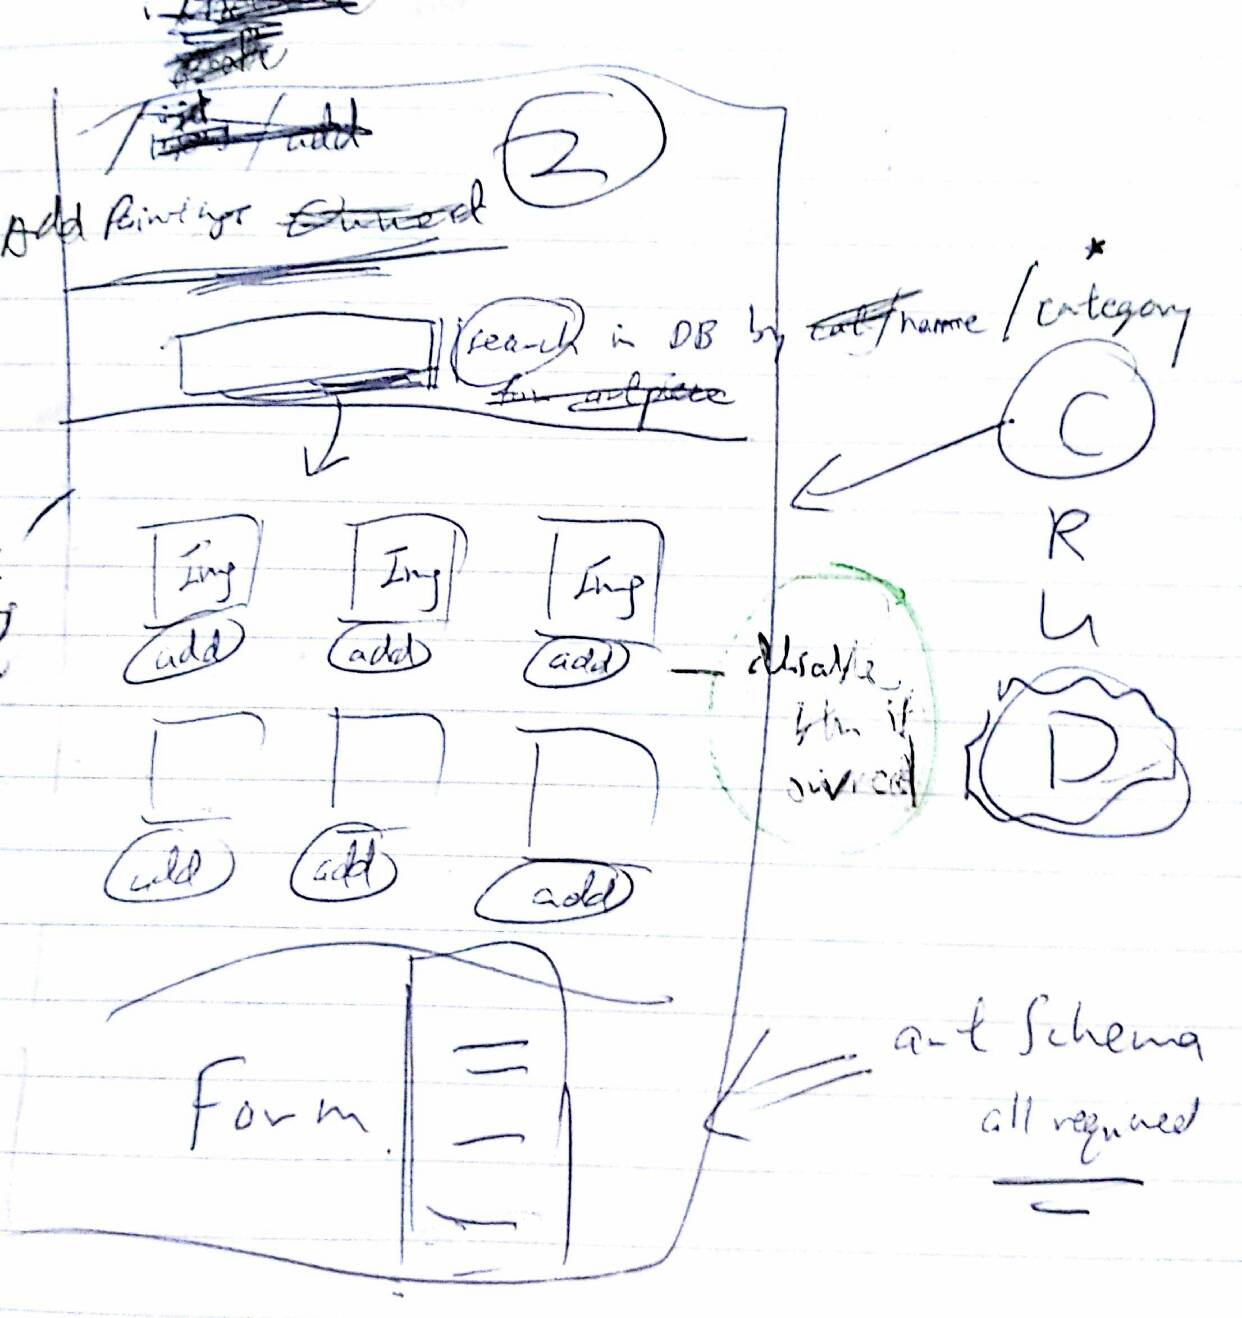 2
Add Paintings
search in DB by name / category *
C
R
U
D
Img Img Img
add add add
disable
btn if
owned
add add add
Form
art Schema
all required